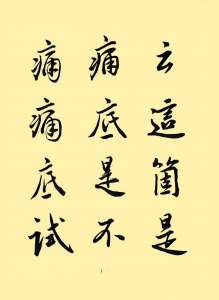 云這箇是
痛底是不
痛痛底試